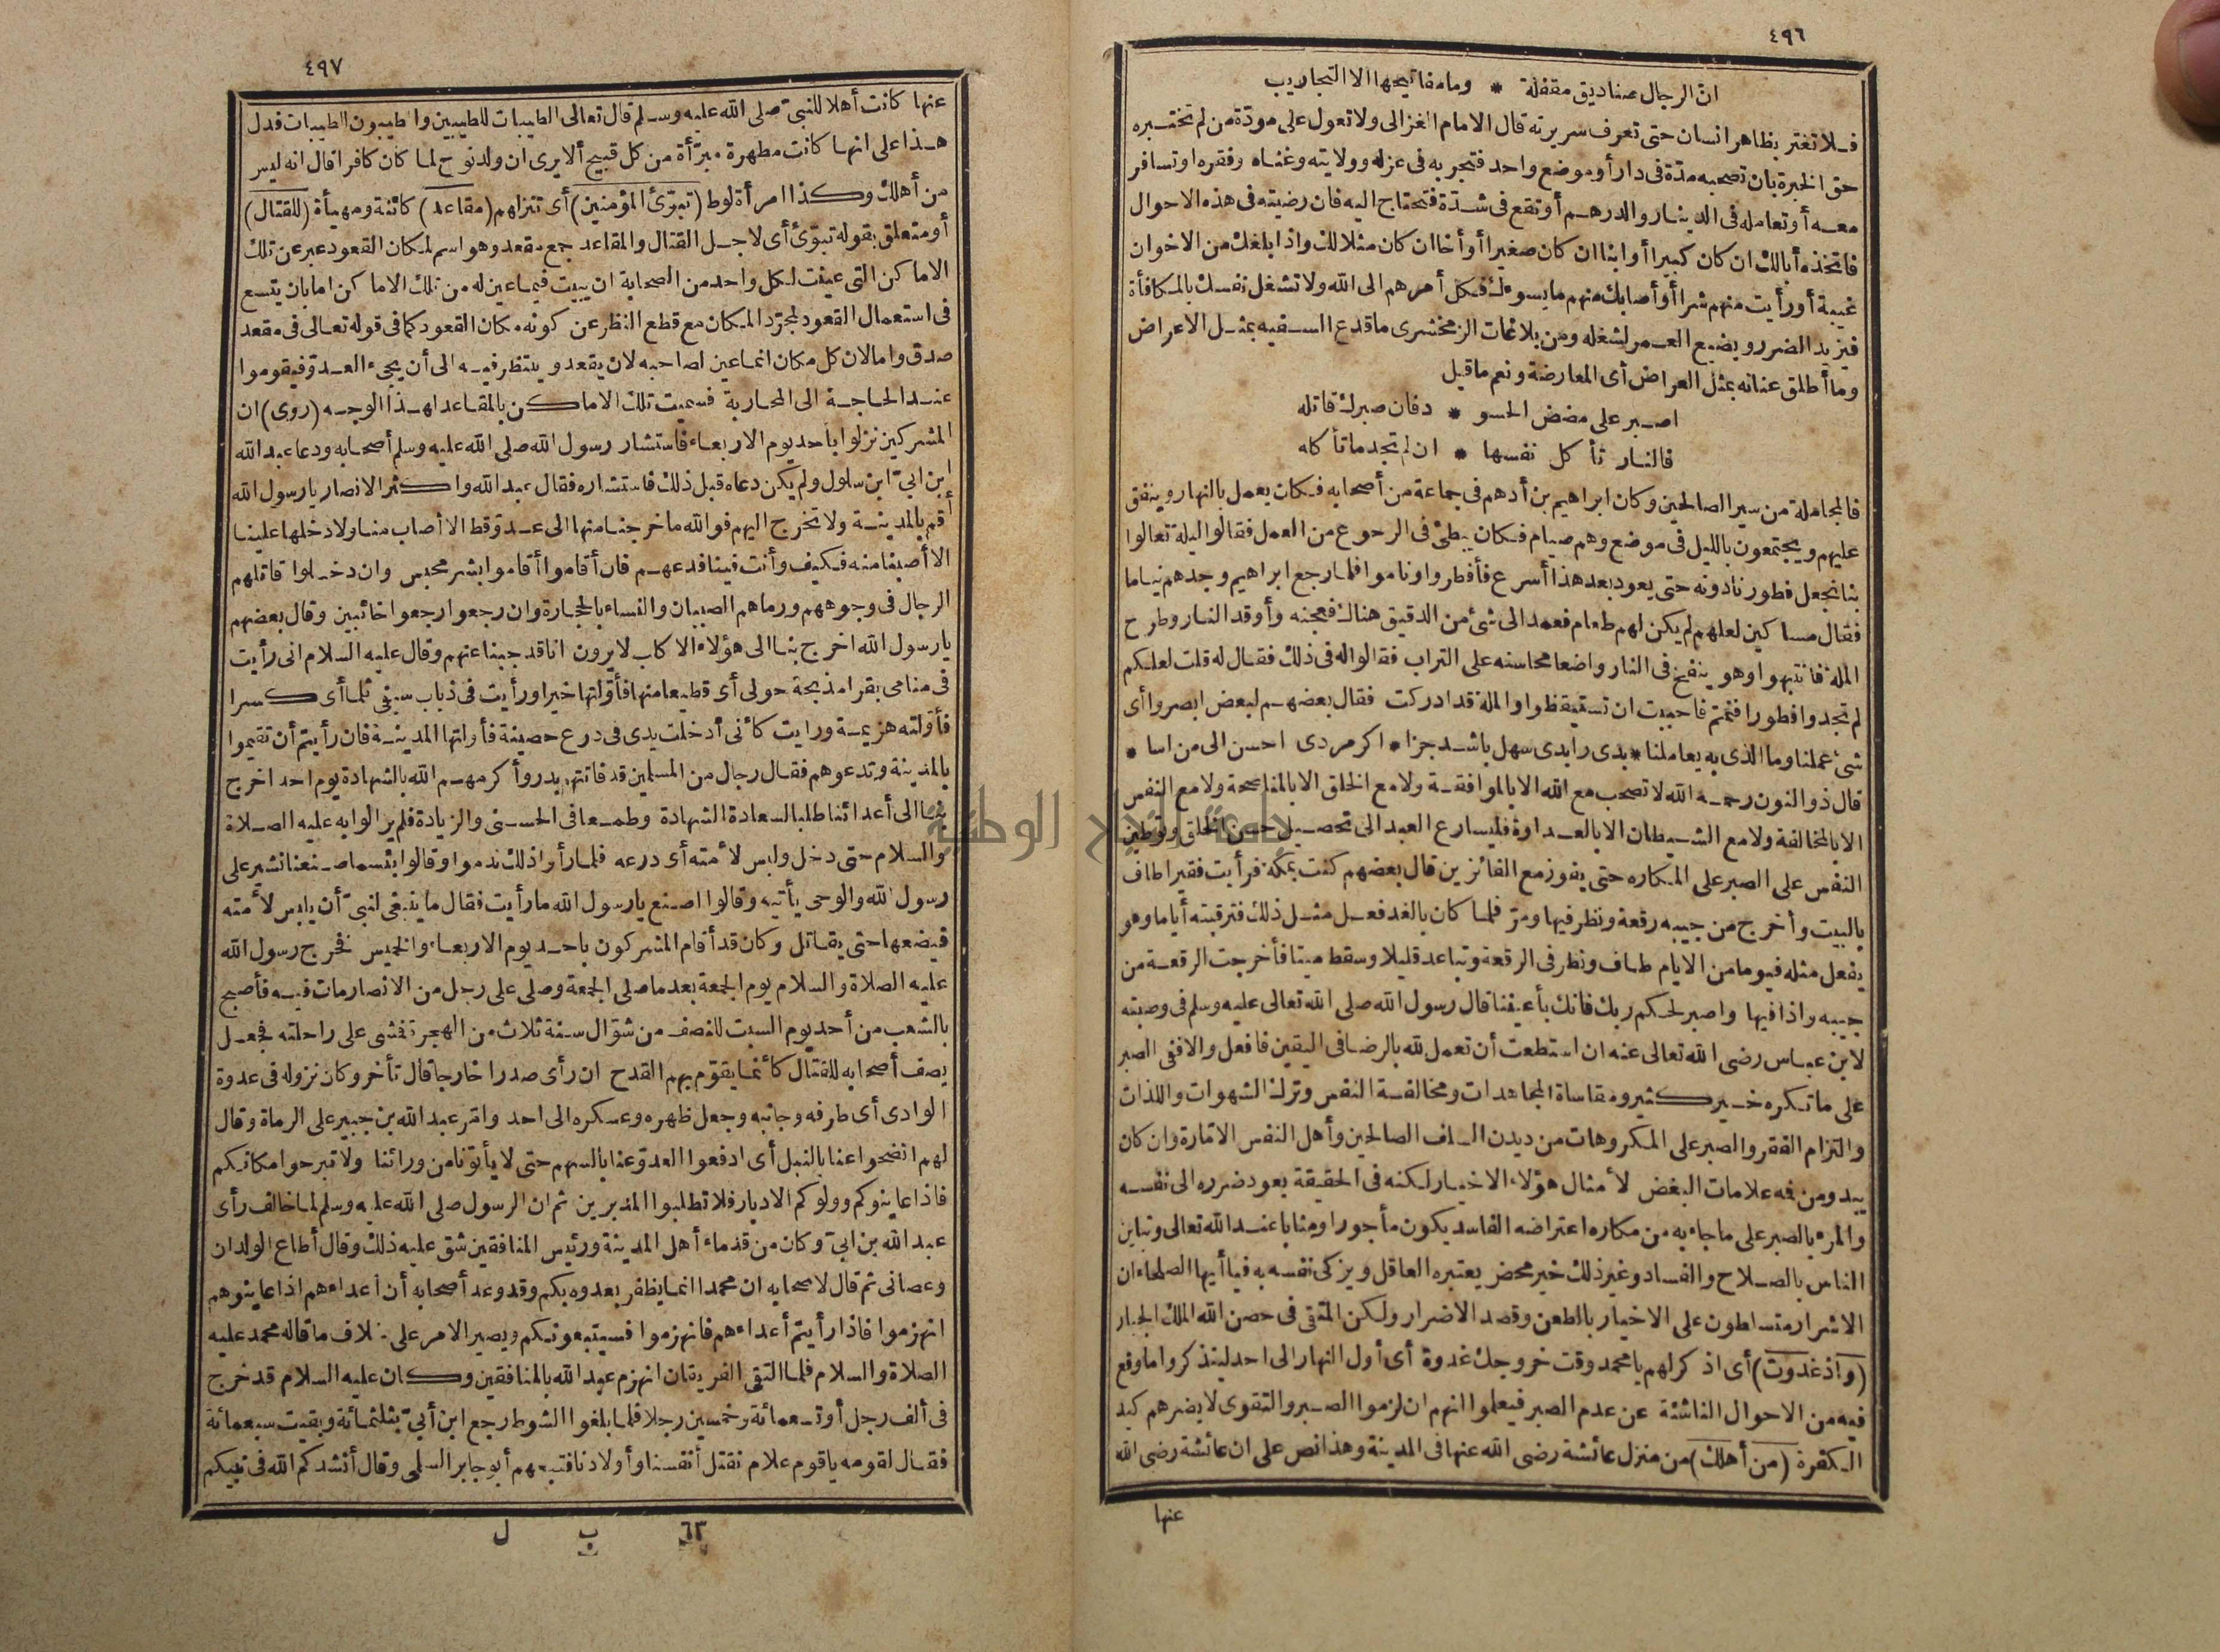 ٤٩٦
انّ الرجال صناديق مقفلة * وما مفاتيحها الا التجاريب
فلا تغتر بظاهر انسان حتى تعرف سريرته قال الامام الغزالى ولا تعول على مودّة من لم تختبره
حق الخبرة بان تصحبه مدّة فى دار أو موضع واحد فتجربه فى عزله وولايته وغناه وفقره او تسافر
معه أو تعامله فى الدينار والدرهم أو تقع فى شدّة فتحتاج اليه فان رضيته فى هذه الاحوال
فاتخذه أبا لك ان كان كبيرا أو ابنا ان كان صغيرا أو أخا ان كان مثلا لك واذا بلغك من الاخوان
غيبة أو رأيت منهم شرا أو أصابك منهم ما يسوءك فكل أمرهم الى الله ولا تشغل نفسك بالمكافأة
فيزيد الضرر ويضيع العمر لشغله ومن بلاغات الزمخشرى ما قدع السفيه بمثل الاعراض
وما أطلق عنانه بمثل العراض أى المعارضة ونعم ما قيل
اصبر على مضض الحسو * د فان صبرك قاتله
فالنار تأكل نفسها * ان لم تجد ما تأكله
فالمجاملة من سير الصالحين وكان ابراهيم بن أدهم فى جماعة من أصحابه فكان يعمل بالنهار وينفق
عليهم ويجتمعون بالليل فى موضع وهم صيام فكان يبطئ فى الرجوع من العمل فقالوا ليلة تعالوا
بنا نجعل فطورنا دونه حتى يعود بعد هذا أسرع فأفطروا وناموا فلما رجع ابراهيم وجدهم نياما
فقال مساكين لعلهم لم يكن لهم طعام فعمد الى شئ من الدقيق هناك فعجنه وأوقد النار وطرح
الملة فانتبهوا وهو ينفخ فى النار واضعا محاسنه على التراب فقالوا له فى ذلك فقال له قلت لعلكم
لم تجدوا فطورا فنمتم فاحببت ان تستيقظوا والملة قد ادركت فقال بعضهم لبعض ابصروا أى
شئ عملنا وما الذى به يعاملنا * بدى را بدى سهل باشد جزا * اكر مردى احسن الى من اسا *
قال ذو النون رحمه الله لا تصحب مع الله الا بالموافقة ولا مع الخلق الا بالمناصحة ولا مع النفس
الا بالمخالفة ولا مع الشيطان الا بالعداوة فليسارع العبد الى تحصيل حسن الخلق وتوطين
النفس على الصبر على المكاره حتى يفوز مع الفائزين قال بعضهم كنت بمكة فرأيت فقيرا طاف
بالبيت وأخرج من جيبه رقعة ونظر فيها ومرّ فلما كان بالغد فعل مثل ذلك فترقبته أياما وهو
يفعل مثله فيوما من الايام طاف ونظر فى الرقعة وتباعد قليلا وسقط ميتا فأخرجت الرقعة من
جيبه واذا فيها واصبر لحكم ربك فانك بأعيننا قال رسول الله صلى الله تعالى عليه وسلم فى وصيته
لابن عباس رضى الله تعالى عنه ان استطعت أن تعمل لله بالرضا فى اليقين فافعل والا ففى الصبر
على ما تكره خير كثير ومقاساة المجاهدات ومخالفة النفس وترك الشهوات واللذات
والتزام الفقر والصبر على المكروهات من ديدن السلف الصالحين وأهل النفس الامّارة وان كان
يبدو من فمه علامات البغض لأمثال هؤلاء الاخيار لكنه فى الحقيقة يعود ضرره الى نفسه
والمرء بالصبر على ما جاء به من مكاره اعتراضه الفاسد يكون مأجورا ومثابا عند الله تعالى وتباين
الناس بالصلاح والفساد وغير ذلك خير محض يعتبره العاقل ويزكى نفسه به فيا أيها الصلحاء ان
الاشرار متسلطون على الاخيار بالطعن وقصد الاضرار ولكن المتقى فى حصن الله الملك الجبار
(واذ غدوت) أى اذكر لهم يا محمد وقت خروجك غدوة أى أول النهار الى احد ليتذكروا ما وقع
فيه من الاحوال الناشئة عن عدم الصبر فيعلموا انهم ان لزموا الصبر والتقوى لا يضرهم كيد
الكفرة (من أهلك) من منزل عائشة رضى الله عنها فى المدينة وهذا نص على ان عائشة رضى الله
عنها
٤٩٧
عنها كانت أهلا للنبىّ صلى الله عليه وسلم قال تعالى الطيبات للطيبين والطيبون للطيبات فدل
هذا على انها كانت مطهرة مبرّأة من كل قبيح ألا يرى ان ولد نوح لما كان كافرا قال انه ليس
من أهلك وكذا امرأة لوط (تبوّئ المؤمنين) أى تنزلهم (مقاعد) كائنة ومهيأة (للقتال)
أو متعلق بقوله تبوّئ أى لاجل القتال والمقاعد جمع مقعد وهو اسم لمكان القعود عبر عن تلك
الاماكن التى عينت لكل واحد من الصحابة ان يبيت فيما عين له من تلك الاماكن اما بان يتسع
فى استعمال القعود لمجرّد المكان مع قطع النظر عن كونه مكان القعود كما فى قوله تعالى فى مقعد
صدق واما لان كل مكان انما عين لصاحبه لان يقعد وينتظر فيه الى أن يجىء العدوّ فيقوموا
عند الحاجة الى المحاربة فسميت تلك الاماكن بالمقاعد لهذا الوجه (روى) ان
المشركين نزلوا بأحد يوم الاربعاء فاستشار رسول الله صلى الله عليه وسلم أصحابه ودعا عبد الله
ابن ابىّ ابن سلول ولم يكن دعاه قبل ذلك فاستشاره فقال عبد الله واكثر الانصار يا رسول الله
أقم بالمدينة ولا تخرج اليهم فو الله ما خرجنا منها الى عدوّ قط الا أصاب منا ولا دخلها علينا
الا أصبنا منه فكيف وأنت فينا فدعهم فان أقاموا أقاموا بشر محبس وان دخلوا قاتلهم
الرجال فى وجوههم ورماهم الصبيان والنساء بالحجارة وان رجعوا رجعوا خائبين وقال بعضهم
يا رسول الله اخرج بنا الى هؤلاء الاكلب لا يرون انا قد جبنا عنهم وقال عليه السلام انى رأيت
فى منامى بقرا مذبحة حولى أى قطيعا منها فأوّلتها خيرا ورأيت فى ذباب سيفى ثلما أى كسرا
فأوّلته هزيمة ورايت كأنى أدخلت يدى فى درع حصينة فأولتها المدينة فان رأيتم أن تقيموا
بالمدينة وتدعوهم فقال رجال من المسلمين قد فاتتهم بدر وأكرمهم الله بالشهادة يوم احد اخرج
بنا الى أعدائنا طلبا لسعادة الشهادة وطمعا فى الحسنى والزيادة فلم يزالوا به عليه الصلاة
والسلام حتى دخل ولبس لأمته أى درعه فلما رأوا ذلك ندموا وقالوا بئسما صنعنا نشير على
رسول الله والوحى يأتيه وقالوا اصنع يا رسول الله ما رأيت فقال ما ينبغى لنبىّ أن يلبس لأمته
فيضعها حتى يقاتل وكان قد أقام المشركون باحد يوم الاربعاء والخميس فخرج رسول الله
عليه الصلاة والسلام يوم الجمعة بعد ما صلى الجمعة وصلى على رجل من الانصار مات فيه فأصبح
بالشعب من أحد يوم السبت للنصف من شوّال سنة ثلاث من الهجرة فمشى على راحلته فجعل
يصف أصحابه للقتال كأنما يقوّم بهم القدح ان رأى صدرا خارجا قال تأخر وكان نزوله فى عدوة
الوادى أى طرفه وجانبه وجعل ظهره وعسكره الى احد وامّر عبد الله بن جبير على الرماة وقال
لهم انضحوا عنا بالنبل أى ادفعوا العدوّ عنا بالسهم حتى لا يأتونا من ورائنا ولا تبرحوا مكانكم
فاذا عاينوكم وولوكم الادبار فلا تطلبوا المدبرين ثم ان الرسول صلى الله عليه وسلم لما خالف رأى
عبد الله بن ابىّ وكان من قدماء أهل المدينة ورئيس المنافقين شق عليه ذلك وقال أطاع الولدان
وعصانى ثم قال لاصحابه ان محمدا انما يظفر بعدوه بكم وقد وعد أصحابه أن أعداءهم اذا عاينوهم
انهزموا فاذا رأيتم أعداءهم فانهزموا فسيتبعونكم ويصير الامر على خلاف ما قاله محمد عليه
الصلاة والسلام فلما التقى الفريقان انهزم عبد الله بالمنافقين وكان عليه السلام قد خرج
فى ألف رجل أو تسعمائة وخمسين رجلا فلما بلغوا الشوط رجع ابن أبىّ بثلثمائة وبقيت سبعمائة
فقال لقومه يا قوم علام نقتل أنفسنا وأولادنا فتبعهم أبو جابر السلمى وقال أنشدكم الله فى نبيكم
٦٣ ب ل
جامعة النجاح الوطنية